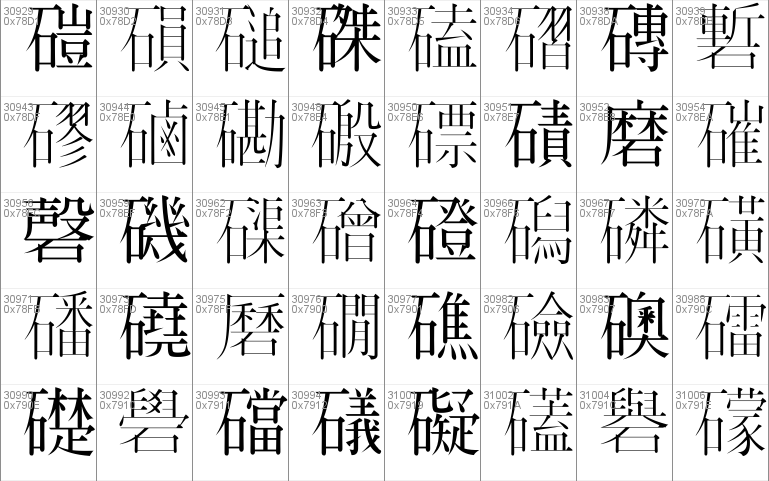 30929 30930 30931 30932 30933 30934 30938 30939
0x78D1 0x78D2 0x78D3 0x78D4 0x78D5 0x78D6 0x78DA 0x78DB
磑 磒 磓 磔 磕 磖 磚 磛
30943 30944 30945 30948 30950 30951 30952 30954
0x78DF 0x78E0 0x78E1 0x78E4 0x78E6 0x78E7 0x78E8 0x78EA
磟 磠 磡 磤 磦 磧 磨 磪
30956 30959 30962 30963 30964 30966 30967 30970
0x78EC 0x78EF 0x78F2 0x78F3 0x78F4 0x78F6 0x78F7 0x78FA
磬 磯 磲 磳 磴 磶 磷 磺
30971 30973 30975 30976 30977 30982 30983 30988
0x78FB 0x78FD 0x78FF 0x7900 0x7901 0x7906 0x7907 0x790C
磻 磽 磿 礀 礁 礆 礇 礌
30990 30992 30993 30994 31001 31002 31004 31006
0x790E 0x7910 0x7911 0x7912 0x7919 0x791A 0x791C 0x791E
礎 礐 礑 礒 礙 礚 礜 礞